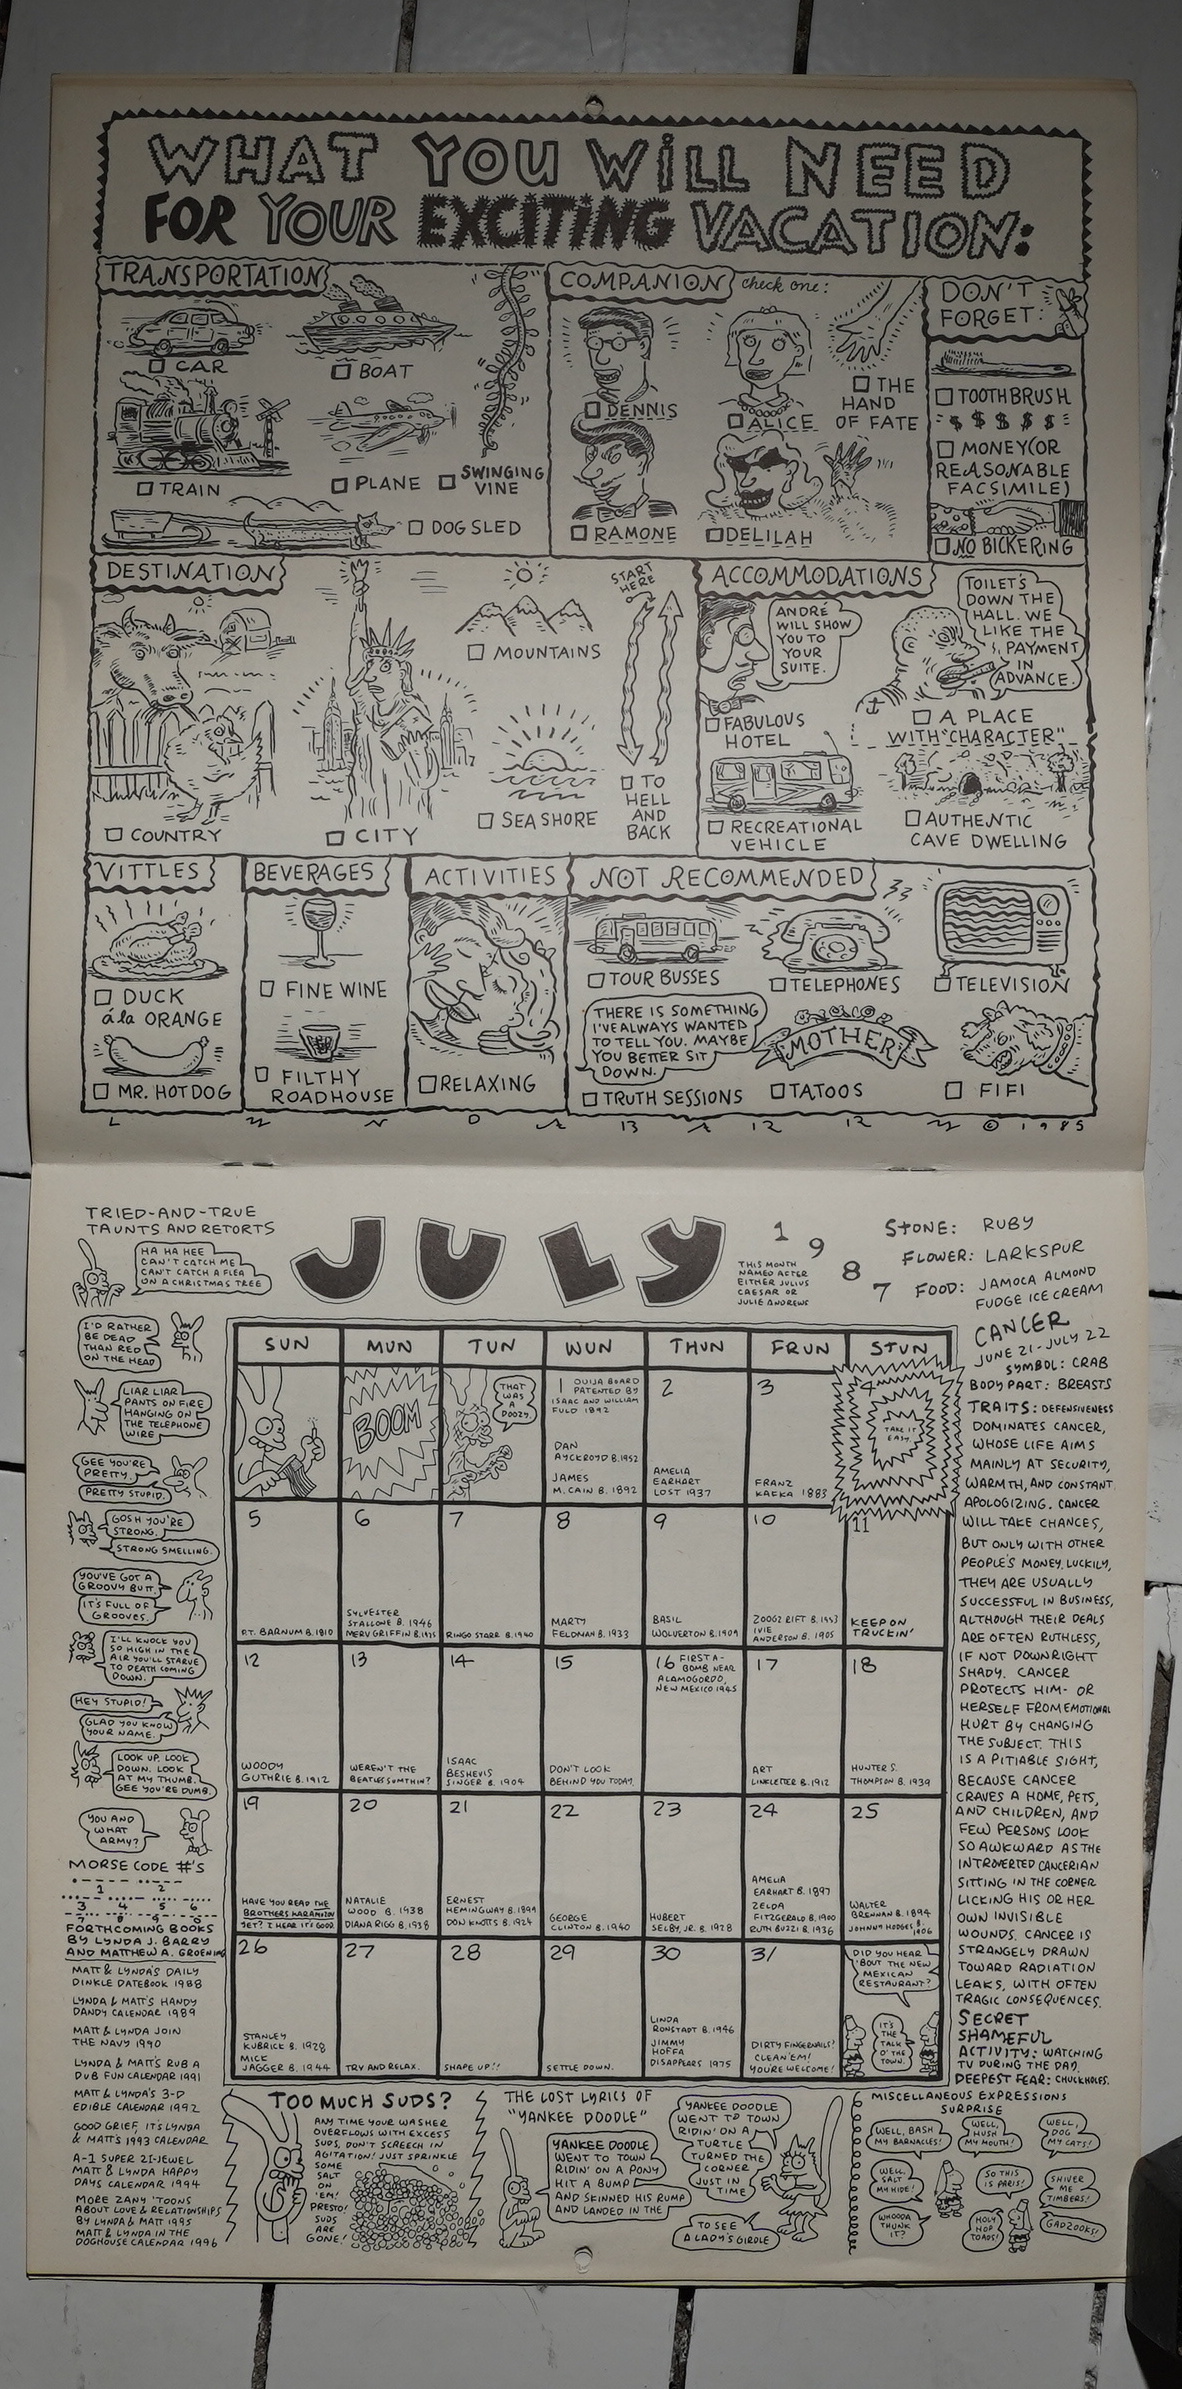 WHAT YOU WILL NEED
FOR YOUR EXCITING VACATION:
TRANSPORTATION
CAR
BOAT
TRAIN
PLANE
SWINGING
VINE
DOG SLED
COMPANION check one:
DENNIS
ALICE
THE
HAND
OF FATE
RAMONE
DELILAH
DON'T
FORGET:
TOOTHBRUSH
$ $ $ $ $
MONEY (OR
REASONABLE
FACSIMILE)
NO BICKERING
DESTINATION
COUNTRY
CITY
MOUNTAINS
SEA SHORE
START
HERE
TO
HELL
AND
BACK
ACCOMMODATIONS
ANDRÉ
WILL SHOW
YOU TO
YOUR
SUITE.
FABULOUS
HOTEL
TOILET'S
DOWN THE
HALL. WE
LIKE THE
PAYMENT
IN
ADVANCE.
A PLACE
WITH "CHARACTER"
RECREATIONAL
VEHICLE
AUTHENTIC
CAVE DWELLING
VITTLES
DUCK
á la ORANGE
MR. HOT DOG
BEVERAGES
FINE WINE
FILTHY
ROADHOUSE
ACTIVITIES
RELAXING
NOT RECOMMENDED
TOUR BUSSES
TELEPHONES
TELEVISION
THERE IS SOMETHING
I'VE ALWAYS WANTED
TO TELL YOU. MAYBE
YOU BETTER SIT
DOWN.
TRUTH SESSIONS
MOTHER
TATOOS
FIFI
© 1985
TRIED-AND-TRUE
TAUNTS AND RETORTS
HA HA HEE
CAN'T CATCH ME
CAN'T CATCH A FLEA
ON A CHRISTMAS TREE
I'D RATHER
BE DEAD
THAN RED
ON THE HEAD
LIAR LIAR
PANTS ON FIRE
HANGING ON
THE TELEPHONE
WIRE
GEE YOU'RE
PRETTY.
PRETTY STUPID.
GOSH YOU'RE
STRONG.
STRONG SMELLING.
YOU'VE GOT A
GROOVY BUTT.
IT'S FULL OF
GROOVES.
I'LL KNOCK YOU
SO HIGH IN THE
AIR YOU'LL STARVE
TO DEATH COMING
DOWN.
HEY STUPID!
GLAD YOU KNOW
YOUR NAME.
LOOK UP. LOOK
DOWN. LOOK
AT MY THUMB.
GEE YOU'RE DUMB.
YOU AND
WHAT
ARMY?
MORSE CODE #'S
1 2
3 4 5 6
7 8 9 0
FORTHCOMING BOOKS
BY LYNDA J. BARRY
AND MATTHEW A. GROENING
MATT & LYNDA'S DAILY
DINKLE DATEBOOK 1988
LYNDA & MATT'S HANDY
DANDY CALENDAR 1989
MATT & LYNDA JOIN
THE NAVY 1990
LYNDA & MATT'S RUB A
DUB FUN CALENDAR 1991
MATT & LYNDA'S 3-D
EDIBLE CALENDAR 1992
GOOD GRIEF, IT'S LYNDA
& MATT'S 1993 CALENDAR
A-1 SUPER 21-JEWEL
MATT & LYNDA HAPPY
DAYS CALENDAR 1994
MORE ZANY 'TOONS
ABOUT LOVE & RELATIONSHIPS
BY LYNDA & MATT 1995
MATT & LYNDA IN THE
DOGHOUSE CALENDAR 1996
JULY
1987
THIS MONTH
NAMED AFTER
EITHER JULIUS
CAESAR OR
JULIE ANDREWS
STONE: RUBY
FLOWER: LARKSPUR
FOOD: JAMOCA ALMOND
FUDGE ICE CREAM
SUN MUN TUN WUN THUN FRUN STUN
BOOM
THAT
WAS
A
DOOZY.
1 OUIJA BOARD
PATENTED BY
ISAAC AND WILLIAM
FULD 1892
DAN
AYCKROYD B. 1952
JAMES
M. CAIN B. 1892
2
AMELIA
EARHART
LOST 1937
3
FRANZ
KAFKA 1883
4
TAKE IT
EASY.
5
P.T. BARNUM B. 1810
6
SYLVESTER
STALLONE B. 1946
MERV GRIFFIN B. 1925
7
RINGO STARR B. 1940
8
MARTY
FELDMAN B. 1933
9
BASIL
WOLVERTON B. 1909
10
ZOOGZ RIFT B. 1953
IVIE
ANDERSON B. 1905
11
KEEP ON
TRUCKIN'
12
WOODY
GUTHRIE B. 1912
13
WEREN'T THE
BEATLES SUMTHIN?
14
ISAAC
BESHEVIS
SINGER B. 1904
15
DON'T LOOK
BEHIND YOU TODAY.
16 FIRST A-
BOMB NEAR
ALAMOGORDO,
NEW MEXICO 1945
17
ART
LINKLETTER B. 1912
18
HUNTER S.
THOMPSON B. 1939
19
HAVE YOU READ THE
BROTHERS KARAMAZOV
YET? I HEAR IT'S GOOD.
20
NATALIE
WOOD B. 1938
DIANA RIGG B. 1938
21
ERNEST
HEMINGWAY B. 1899
DON KNOTTS B. 1924
22
GEORGE
CLINTON B. 1940
23
HUBERT
SELBY, JR. B. 1928
24
AMELIA
EARHART B. 1897
ZELDA
FITZGERALD B. 1900
RUTH BUZZI B. 1936
25
WALTER
BRENNAN B. 1894
JOHNNY HODGES B.
1906
26
STANLEY
KUBRICK B. 1928
MICK
JAGGER B. 1944
27
TRY AND RELAX.
28
SHAPE UP!!
29
SETTLE DOWN.
30
LINDA
RONSTADT B. 1946
JIMMY
HOFFA
DISAPPEARS 1975
31
DIRTY FINGERNAILS?
CLEAN 'EM!
YOU'RE WELCOME!
DID YOU HEAR
'BOUT THE NEW
MEXICAN
RESTAURANT?
IT'S
THE
TALK
O' THE
TOWN.
CANCER
JUNE 21-JULY 22
SYMBOL: CRAB
BODY PART: BREASTS
TRAITS: DEFENSIVENESS
DOMINATES CANCER,
WHOSE LIFE AIMS
MAINLY AT SECURITY,
WARMTH, AND CONSTANT
APOLOGIZING. CANCER
WILL TAKE CHANCES,
BUT ONLY WITH OTHER
PEOPLE'S MONEY. LUCKILY,
THEY ARE USUALLY
SUCCESSFUL IN BUSINESS,
ALTHOUGH THEIR DEALS
ARE OFTEN RUTHLESS,
IF NOT DOWNRIGHT
SHADY. CANCER
PROTECTS HIM- OR
HERSELF FROM EMOTIONAL
HURT BY CHANGING
THE SUBJECT. THIS
IS A PITIABLE SIGHT,
BECAUSE CANCER
CRAVES A HOME, PETS,
AND CHILDREN, AND
FEW PERSONS LOOK
SO AWKWARD AS THE
INTROVERTED CANCERIAN
SITTING IN THE CORNER
LICKING HIS OR HER
OWN INVISIBLE
WOUNDS. CANCER IS
STRANGELY DRAWN
TOWARD RADIATION
LEAKS, WITH OFTEN
TRAGIC CONSEQUENCES.
SECRET
SHAMEFUL
ACTIVITY: WATCHING
TV DURING THE DAY.
DEEPEST FEAR: CHUCKHOLES.
TOO MUCH SUDS?
ANY TIME YOUR WASHER
OVERFLOWS WITH EXCESS
SUDS, DON'T SCREECH IN
AGITATION! JUST SPRINKLE
SOME
SALT
ON
'EM!
PRESTO!
SUDS
ARE
GONE!
THE LOST LYRICS OF
"YANKEE DOODLE"
YANKEE DOODLE
WENT TO TOWN
RIDIN' ON A PONY
HIT A BUMP
AND SKINNED HIS RUMP
AND LANDED IN THE
YANKEE DOODLE
WENT TO TOWN
RIDIN' ON A
TURTLE
TURNED THE
CORNER
JUST IN
TIME
TO SEE
A LADY'S GIRDLE
MISCELLANEOUS EXPRESSIONS
SURPRISE
WELL, BASH
MY BARNACLES!
WELL,
HUSH
MY MOUTH!
WELL,
DOG
MY CATS!
WELL,
SALT
MY HIDE!
SO THIS
IS PARIS!
SHIVER
ME
TIMBERS!
WHOODA
THUNK
IT?
HOLY
HOP
TOADS!
GADZOOKS!